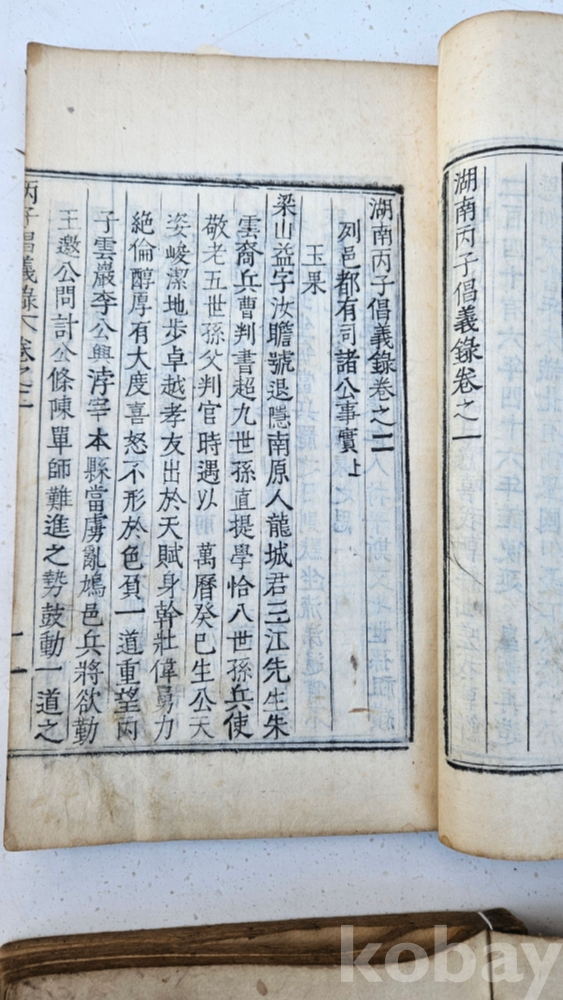 湖南丙子倡義錄卷之一
湖南丙子倡義錄卷之二
列邑都有司諸公事實上
玉果
梁山益字汝瞻號退隱南原人龍城君三江先生朱
雲裔兵曹判書超九世孫直提學恰八世孫兵使
敬老五世孫父判官時遇以萬曆癸巳生公天
姿峻潔地步卓越孝友出於天賦身幹壯偉勇力
絶倫醇厚有大度喜怒不形於色負一道重望丙
子雲巖李公興浡宰本縣當虜亂鳩邑兵將欲勤
王邀公問計公條陳單師難進之勢鼓動一道之
丙子倡義錄 卷之二
一
kobay